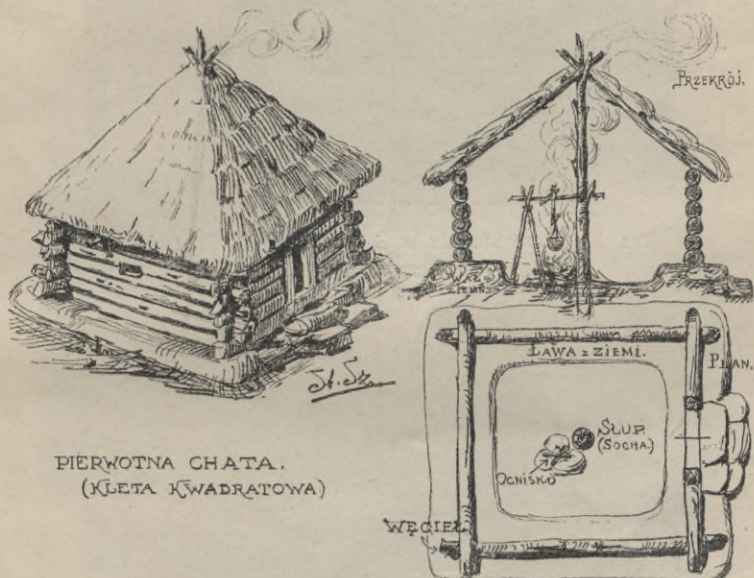 PRZEKRÓJ.
ŁAWA z ZIEMI.
PLAN.
SŁUP.
(SOCHA.)
OGNISKO
WĘGIEŁ
PIERWOTNA CHATA.
(KLETA KWADRATOWA)